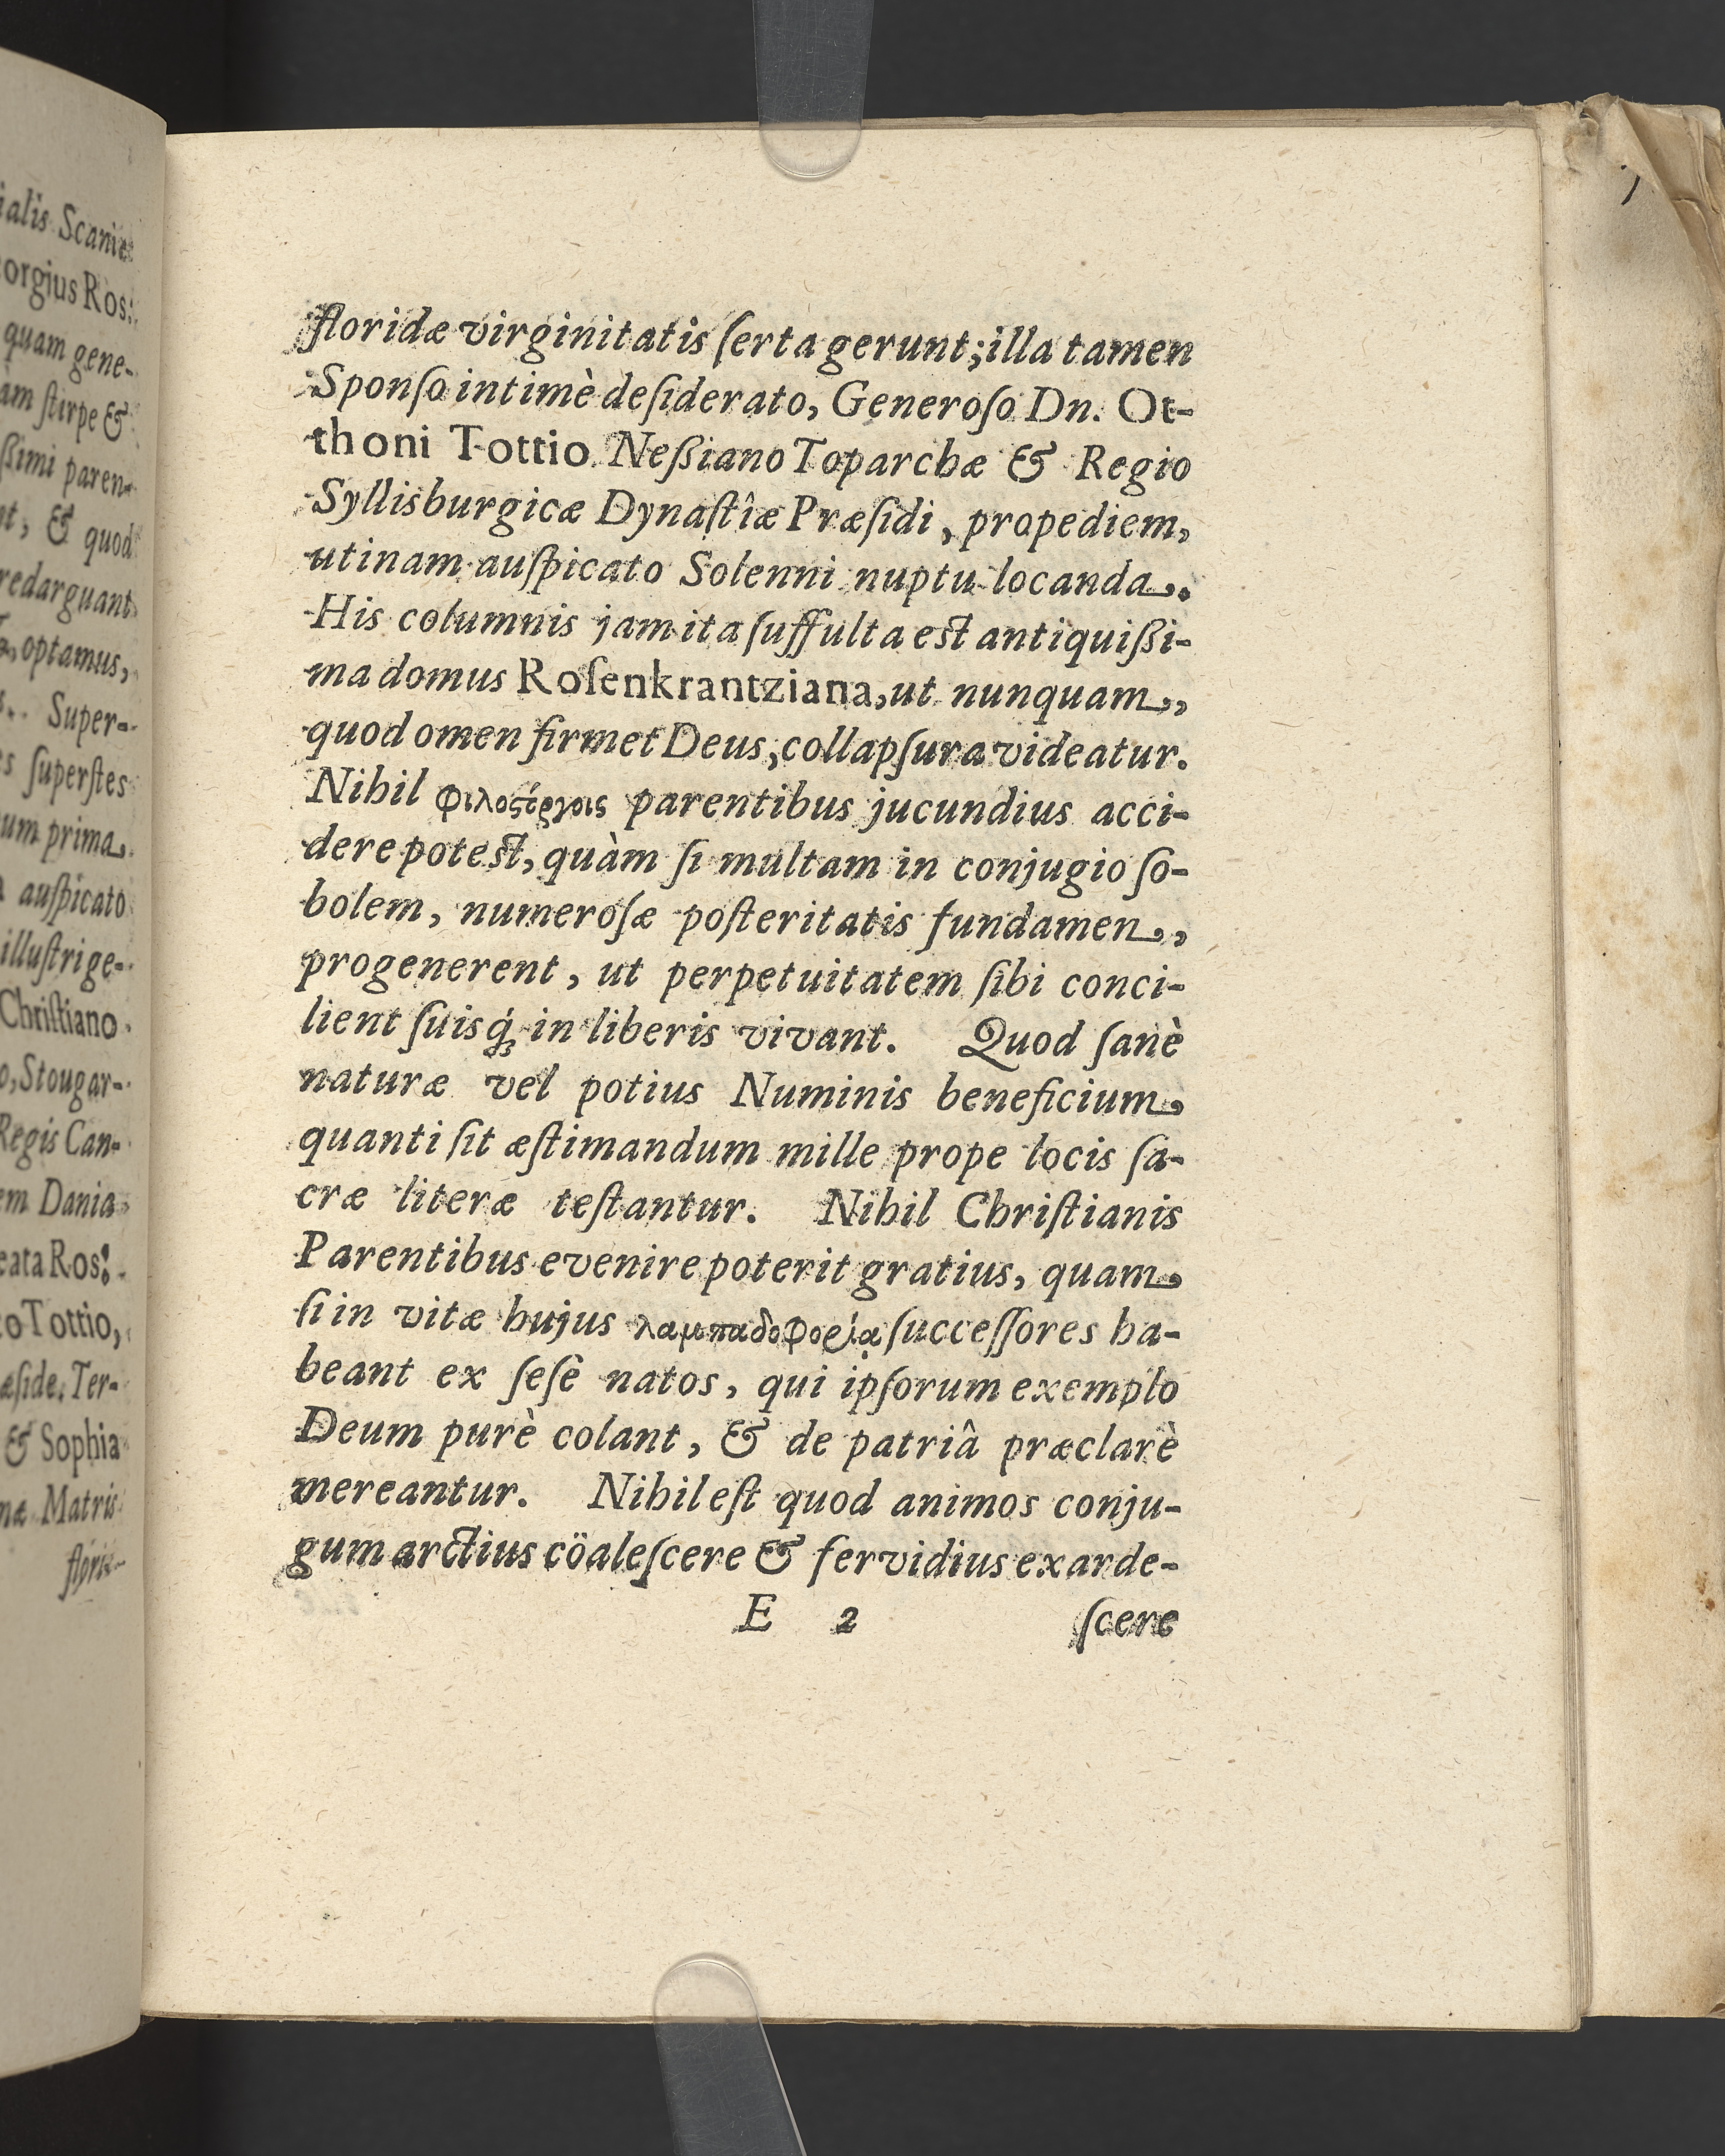 ialis Scaniæ
orgius Ros:
quam gene-
am ſtirpe &
ßimi paren-
nt, & quod
redarguant
optamus,
Super-
s ſuperſtes
um prima
auſpicato
illuſtri ge-
Chriſtiano
o, Stougar-
Regis Can-
em Dania
eata Ros:
to Tottio,
æſide. Ter-
& Sophia
næ Matris
flori-
floridæ virginitatis ſerta gerunt; illa tamen
Sponſo intimè deſiderato, Generoſo Dn. Ot-
thoni Tottio Neßiano Toparchæ & Regio
Syllisburgicæ Dynaſtîæ Præſidi, propediem,
utinam auſpicato Solenni nuptu locanda.
His columnis jam ita ſuffulta est antiquißi-
ma domus Roſenkrantziana, ut nunquam,
quod omen firmet Deus, collapſura videatur.
Nihil φιλοϛόργοις parentibus jucundius acci-
dere potest, quàm ſi multam in conjugio ſo-
bolem, numeroſæ poſteritatis fundamen,
progenerent, ut perpetuitatem ſibi conci-
lient ſuisq́; in liberis vivant. Quod ſanè
naturæ vel potius Numinis beneficium
quanti ſit æſtimandum mille prope locis ſa-
cræ literæ teſtantur. Nihil Chriſtianis
Parentibus evenire poterit gratius, quam
ſi in vitæ hujus λαμπαδοφορίᾳ ſucceſſores ha-
beant ex ſeſè natos, qui ipſorum exemplo
Deum purè colant, & de patriâ præclarè
mereantur. Nihil eſt quod animos conju-
gum arctius cöaleſcere & fervidius exarde-
E 2 ſcere